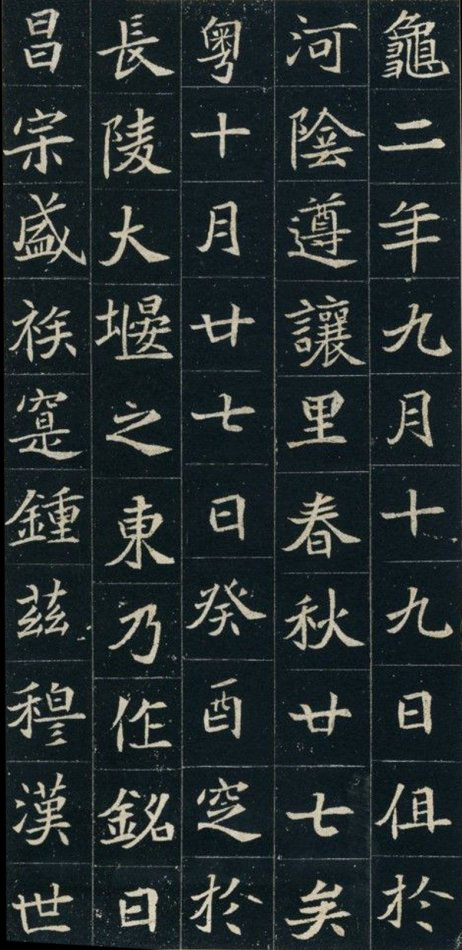 龜二年九月十九日伹於
河陰遵讓里春秋廿七矣
粵十月廿七日癸酉窆於
長陵大堰之東乃作銘曰
昌宗盛族寔鍾茲穆漢世